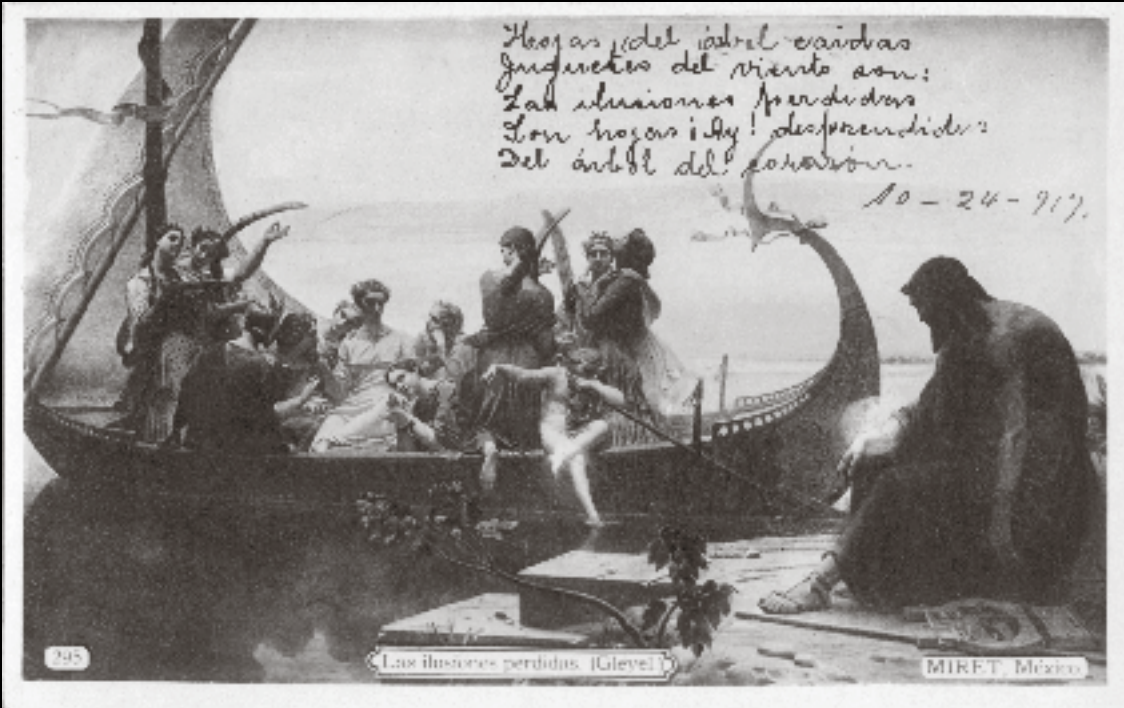 Hojas del árbol caidas
Juguetes del viento son:
Las ilusiones perdidas
Son hojas ¡Ay! desprendidas
Del árbol del corazón.
10-24-917.
295
Las ilusiones perdidas. (Gleyel)
MIRET, México